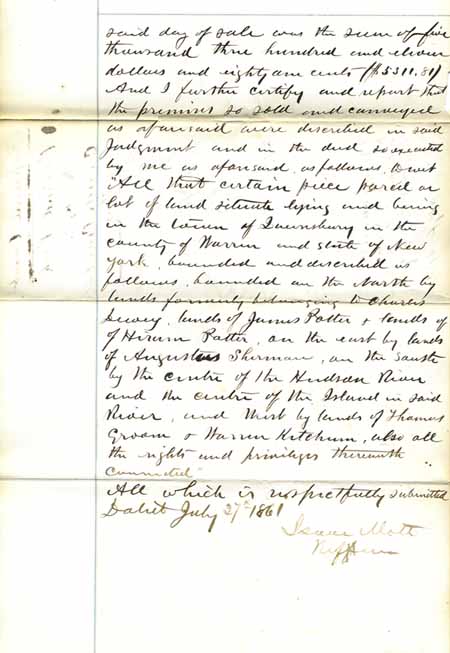 said day of sale was the sum of five
thousand three hundred and eleven
dollars and eighty one cents ($5311.81)
And I further certify and report that
the premises so sold and conveyed
as aforesaid were described in said
Judgment and in the deed so executed
by me as aforesaid, as follows, to wit
"All that certain piece parcel or
lot of land situate lying and being
in the town of Queensbury in the
county of Warren and state of New
York, bounded and described as
follows, bounded on the North by
lands formerly belonging to Charles
Dewey, lands of James Potter & lands of
of Hiram Potter, on the east by lands
of Augustus Sherman, on the South
by the centre of the Hudson River
and the centre of the Island in said
River, and West by lands of Thomas
Groom & Warren Ketchum, also all
the rights and privileges therewith
connected"
All which is respectfully submitted
Dated July 27th 1861
Isaac Mott